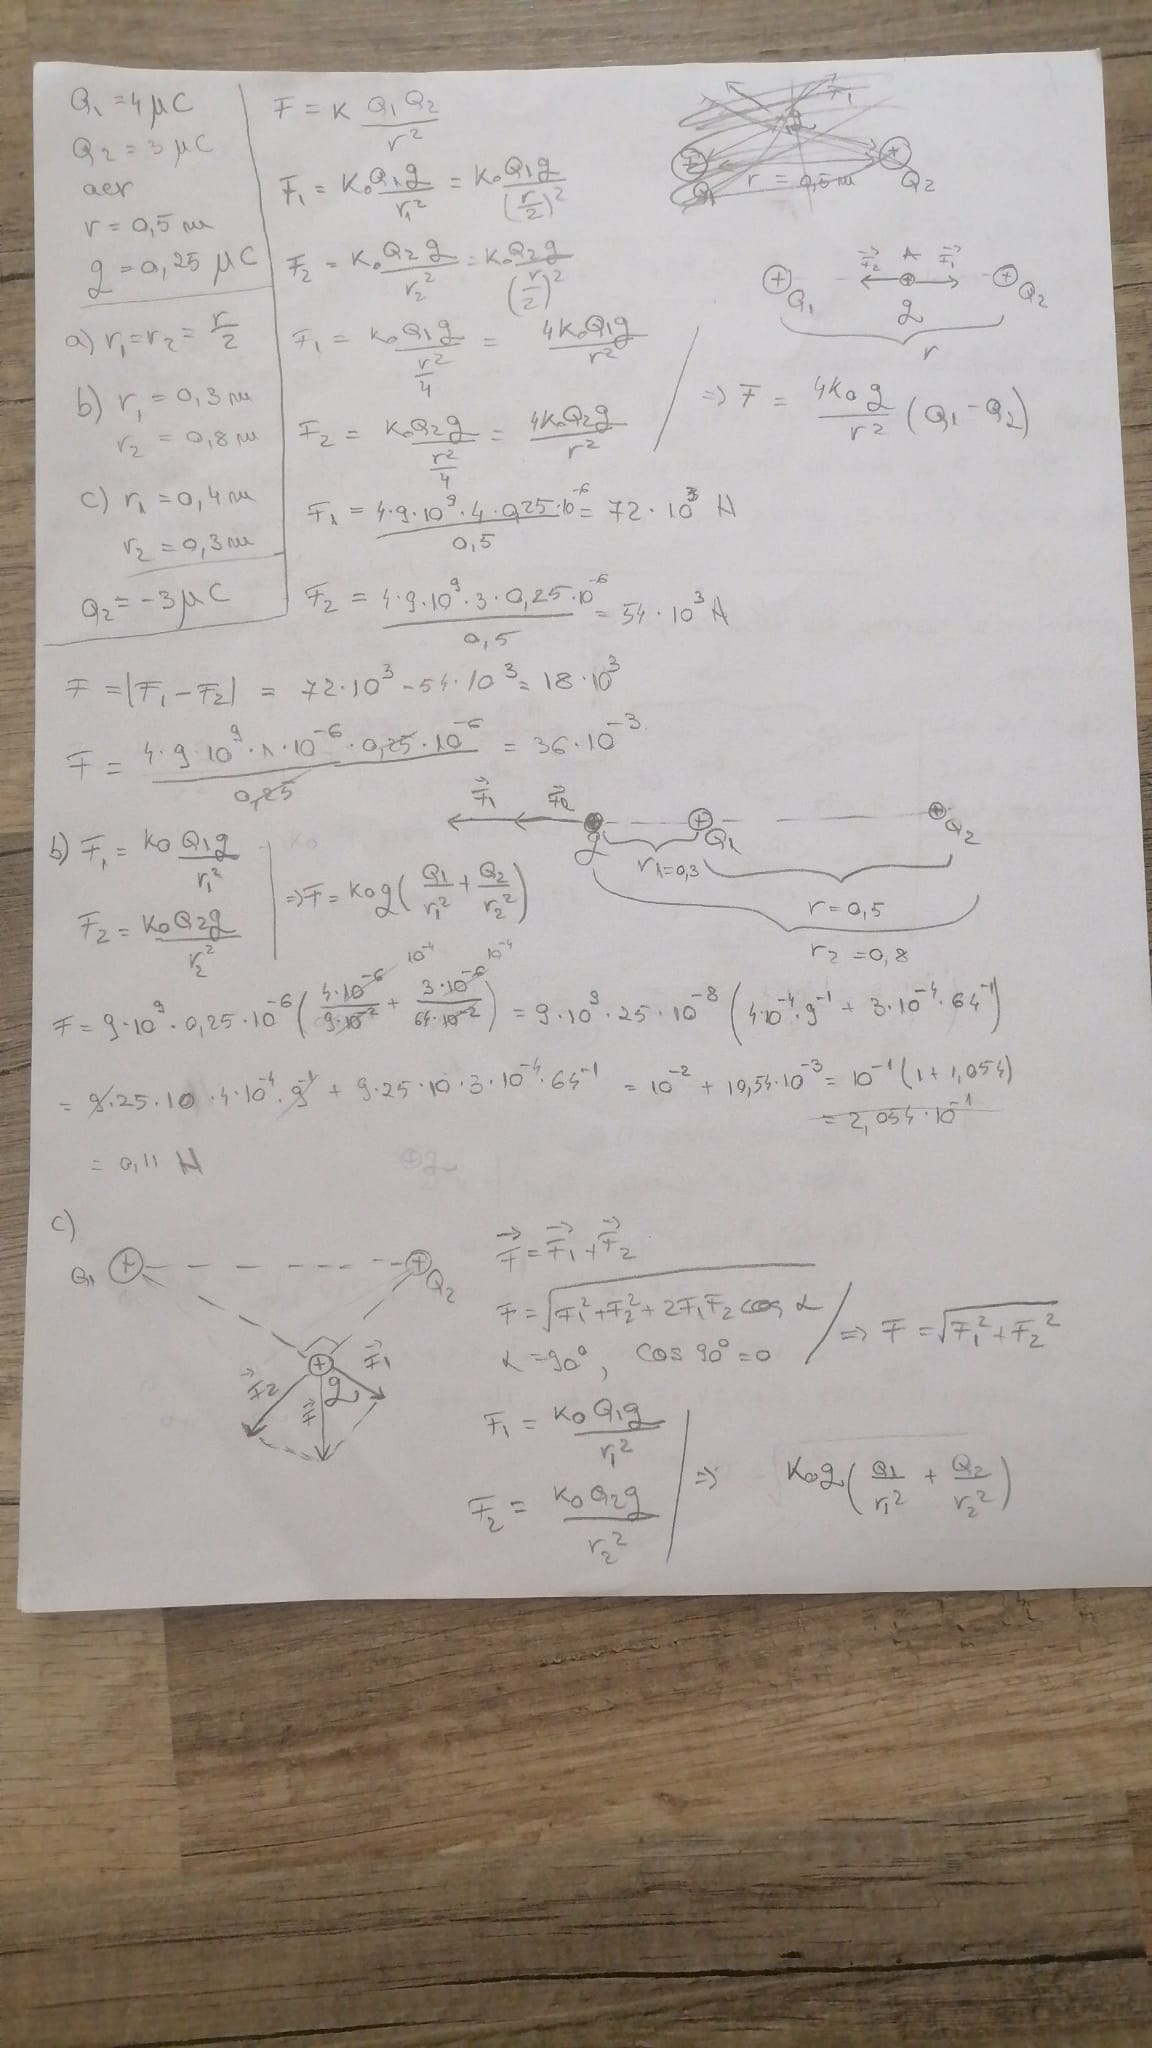 Q₁ = 4 μC
Q₂ = 3 μC
aer
r = 0,5 m
q = 0,25 μC
a) r₁ = r₂ = r/2
b) r₁ = 0,3 m
r₂ = 0,8 m
c) r₁ = 0,4 m
r₂ = 0,3 m
Q₂ = -3 μC
F = K Q₁ Q₂ / r²
F₁ = K₀ Q₁ q / r₁² = K₀ Q₁ q / (r/2)²
F₂ = K₀ Q₂ q / r₂² = K₀ Q₂ q / (r/2)²
F₁ = K₀ Q₁ q / (r²/4) = 4K₀ Q₁ q / r²
F₂ = K₀ Q₂ q / (r²/4) = 4K₀ Q₂ q / r²
⇒ F = 4K₀ q / r² (Q₁ - Q₂)
F₁
r = 0,5 m
Q₁ Q₂
F₂ A F₁
Q₁ q Q₂
r
F₁ = 4·9·10⁹·4·0,25·10⁻⁶ / 0,5 = 72·10³ N
F₂ = 4·9·10⁹·3·0,25·10⁻⁶ / 0,5 = 54·10³ N
F = |F₁ - F₂| = 72·10³ - 54·10³ = 18·10³
F = 4·9·10⁹·1·10⁻⁶·0,25·10⁻⁶ / 0,25 = 36·10⁻³
F₁ F₂
q Q₁ Q₂
r₁=0,3
r = 0,5
r₂ = 0,8
b) F₁ = K₀ Q₁ q / r₁²
F₂ = K₀ Q₂ q / r₂²
⇒ F = K₀ q (Q₁/r₁² + Q₂/r₂²)
10⁻⁴ 10⁻⁴
F = 9·10⁹·0,25·10⁻⁶ (4·10⁻⁶ / 9·10⁻² + 3·10⁻⁶ / 64·10⁻²) = 9·10⁹·25·10⁻⁸ (4·10⁻⁴·9⁻¹ + 3·10⁻⁴·64⁻¹)
= 9·25·10·4·10⁻⁴·9⁻¹ + 9·25·10·3·10⁻⁴·64⁻¹ = 10⁻² + 10,54·10⁻³ = 10⁻¹ (1 + 1,054)
= 2,054·10⁻¹
= 0,11 N
c)
Q₁ Q₂
F₂ q F₁
F
F = F₁ + F₂
F = √(F₁² + F₂² + 2F₁F₂ cos α)
α = 90°, cos 90° = 0
⇒ F = √(F₁² + F₂²)
F₁ = K₀ Q₁ q / r₁²
F₂ = K₀ Q₂ q / r₂²
⇒ K₀ q (Q₁/r₁² + Q₂/r₂²)